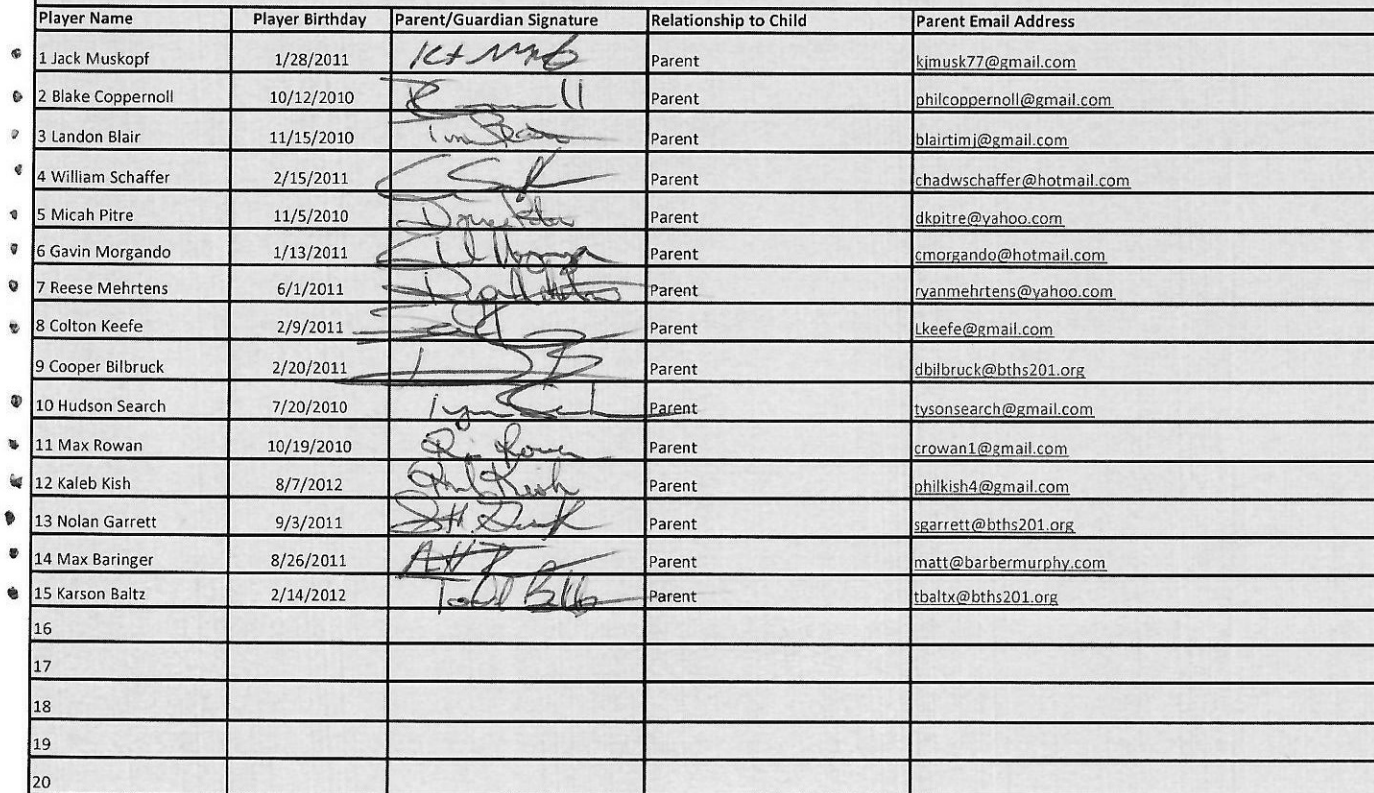 Player Name Player Birthday Parent/Guardian Signature Relationship to Child Parent Email Address
1 Jack Muskopf 1/28/2011 Parent kjmusk77@gmail.com
2 Blake Coppernoll 10/12/2010 Parent philcoppernoll@gmail.com
3 Landon Blair 11/15/2010 Parent blairtimj@gmail.com
4 William Schaffer 2/15/2011 Parent chadwschaffer@hotmail.com
5 Micah Pitre 11/5/2010 Parent dkpitre@yahoo.com
6 Gavin Morgando 1/13/2011 Parent cmorgando@hotmail.com
7 Reese Mehrtens 6/1/2011 Parent ryanmehrtens@yahoo.com
8 Colton Keefe 2/9/2011 Parent Lkeefe@gmail.com
9 Cooper Bilbruck 2/20/2011 Parent dbilbruck@bths201.org
10 Hudson Search 7/20/2010 Parent tysonsearch@gmail.com
11 Max Rowan 10/19/2010 Parent crowan1@gmail.com
12 Kaleb Kish 8/7/2012 Phil Kish Parent philkish4@gmail.com
13 Nolan Garrett 9/3/2011 Parent sgarrett@bths201.org
14 Max Baringer 8/26/2011 Parent matt@barbermurphy.com
15 Karson Baltz 2/14/2012 Parent tbaltx@bths201.org
16
17
18
19
20